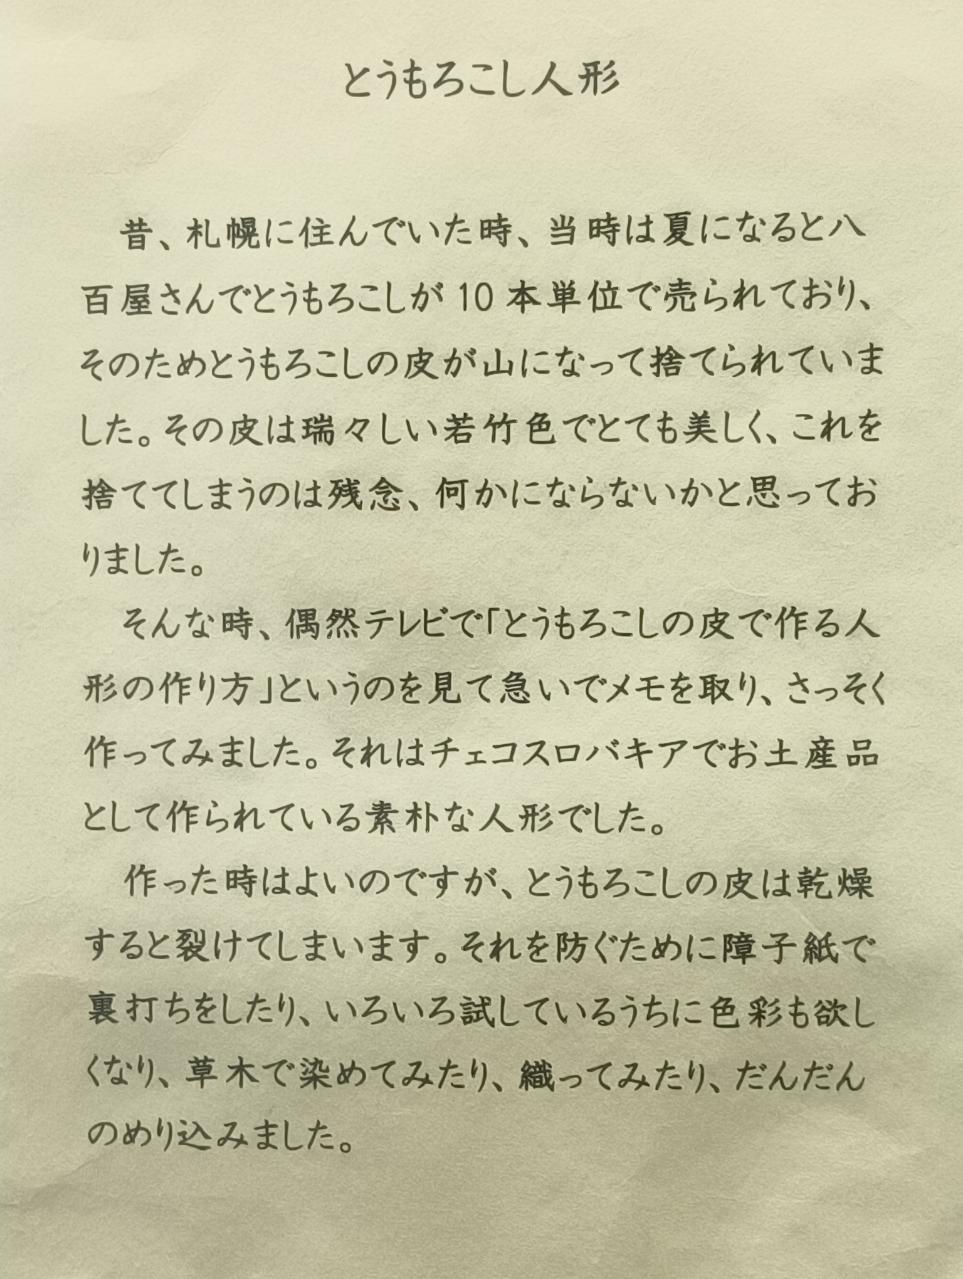 とうもろこし人形
昔、札幌に住んでいた時、当時は夏になると八
百屋さんでとうもろこしが10本単位で売られており、
そのためとうもろこしの皮が山になって捨てられていま
した。その皮は瑞々しい若竹色でとても美しく、これを
捨ててしまうのは残念、何かにならないかと思ってお
りました。
そんな時、偶然テレビで「とうもろこしの皮で作る人
形の作り方」というのを見て急いでメモを取り、さっそく
作ってみました。それはチェコスロバキアでお土産品
として作られている素朴な人形でした。
作った時はよいのですが、とうもろこしの皮は乾燥
すると裂けてしまいます。それを防ぐために障子紙で
裏打ちをしたり、いろいろ試しているうちに色彩も欲し
くなり、草木で染めてみたり、織ってみたり、だんだん
のめり込みました。